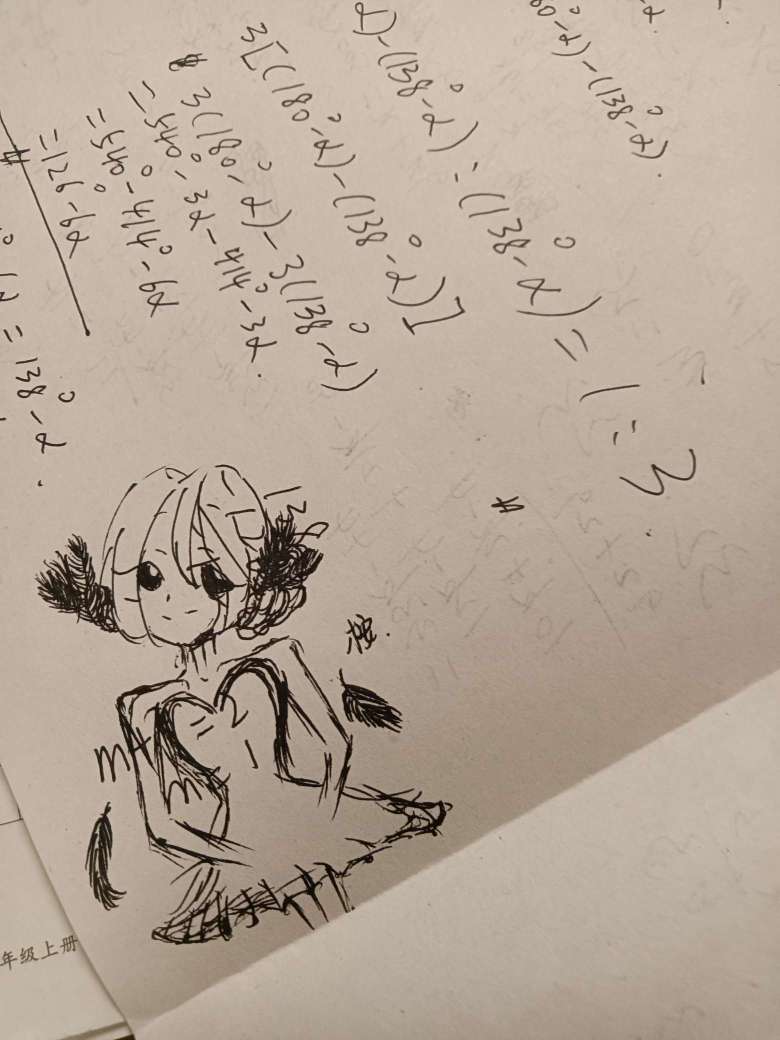 80°-α)-(138°-α).
α)-(138°-α):(138°-α)=1:3
3[(180°-α)-(138°-α)]
3(180°-α)-3(138°-α)
=540°-3α-414°-3α.
=540°-414°-6α
=126°-6α
α=138°-α.
m+
m
年级上册